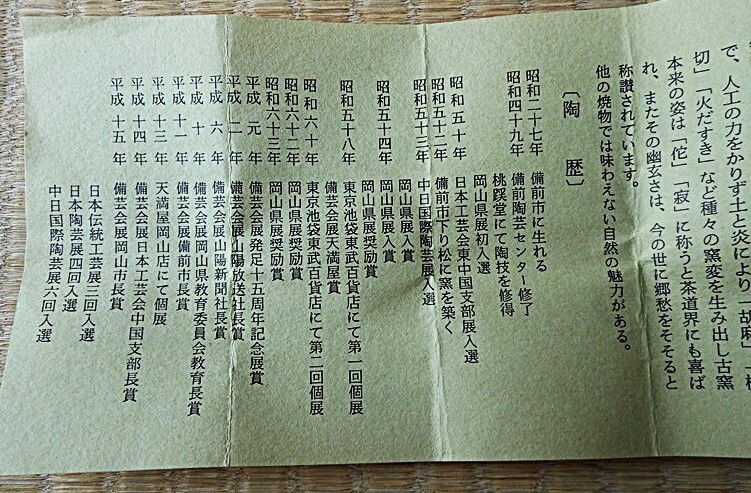 で、人工の力をかりず土と炎により「胡麻」「桟
切」「火だすき」など種々の窯変を生み出し古窯
本来の姿は「侘」「寂」に称うと茶道界にも喜ば
れ、またその幽玄さは、今の世に郷愁をそそると
称讃されています。
他の焼物では味わえない自然の魅力がある。
〔陶　歴〕
昭和二十七年　備前市に生れる
昭和四十九年　備前陶芸センター修了
桃蹊堂にて陶技を修得
岡山県展初入選
昭和五十年　日本工芸会東中国支部展入選
昭和五十二年　備前市下り松に窯を築く
昭和五十三年　中日国際陶芸展入選
岡山県展入賞
昭和五十四年　岡山県展入賞
岡山県展奨励賞
昭和五十八年　東京池袋東武百貨店にて第一回個展
備芸会展天満屋賞
昭和六十年　東京池袋東武百貨店にて第二回個展
昭和六十二年　岡山県展奨励賞
昭和六十三年　岡山県展奨励賞
平成元年　備芸会展発足十五周年記念展賞
平成二年　備芸会展山陽放送社長賞
平成六年　備芸会展山陽新聞社長賞
平成十年　備芸会展岡山県教育委員会教育長賞
平成十一年　備芸会展備前市長賞
平成十三年　天満屋岡山店にて個展
平成十四年　備芸会展日本工芸会中国支部長賞
平成十五年　備芸会展岡山市長賞
日本伝統工芸展三回入選
日本陶芸展四回入選
中日国際陶芸展六回入選